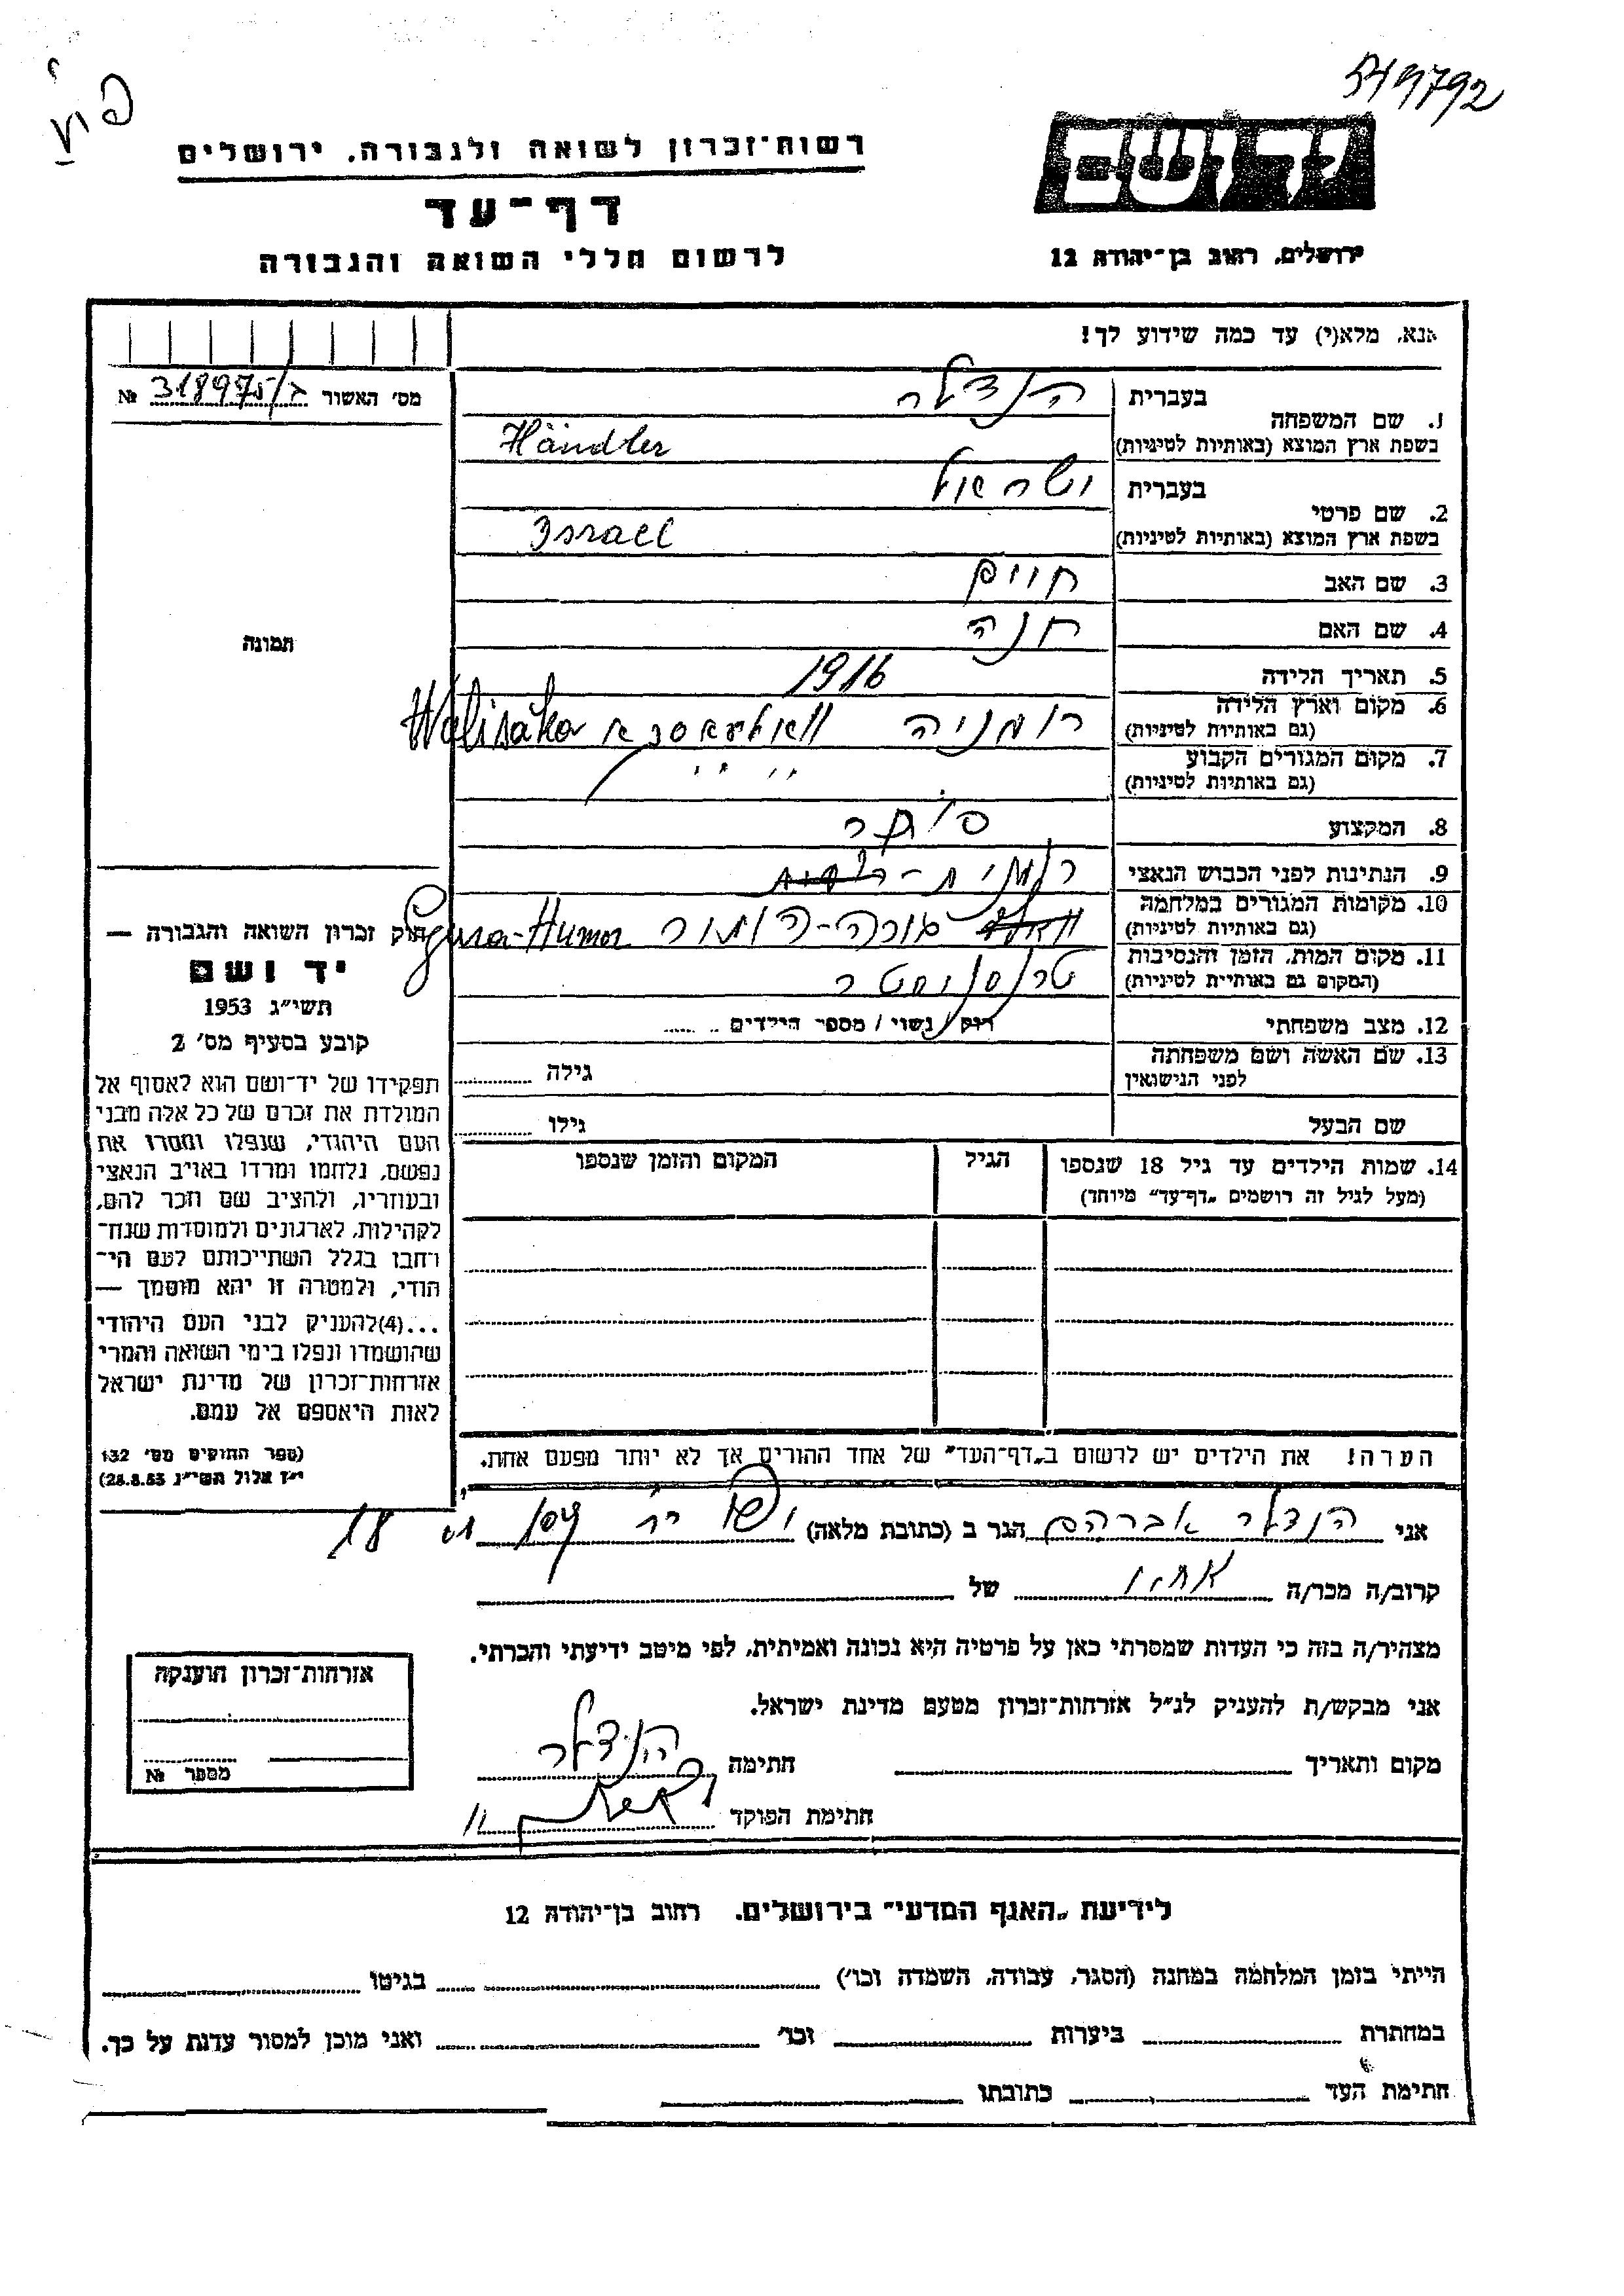 549792
רשות־זכרון לשואה ולגבורה, ירושלים
דף־עד
לרשום חללי השואה והגבורה
יד ושם
ירושלים, רחוב בן־יהודה 12
אנא, מלא(י) עד כמה שידוע לך!
מס' האשור 318975/ג №
תמונה
1. שם המשפחה
בעברית הנדלר
בשפת ארץ המוצא (באותיות לטיניות) Händler
2. שם פרטי
בעברית ישראל
בשפת ארץ המוצא (באותיות לטיניות) Israel
3. שם האב חיים
4. שם האם חנה
5. תאריך הלידה 1916
6. מקום וארץ הלידה
(גם באותיות לטיניות) רומניה Walisaka
7. מקום המגורים הקבוע
(גם באותיות לטיניות) " "
8. המקצוע סוחר
9. הנתינות לפני הכבוש הנאצי רומנית
10. מקומות המגורים במלחמה
(גם באותיות לטיניות) גורה-הומור Gura-Humor
11. מקום המות, הזמן והנסיבות
(המקום גם באותיות לטיניות) טרנסניסטר
12. מצב משפחתי רווק / נשוי / מספר הילדים
13. שם האשה ושם משפחתה
לפני הנישואין
גילה
שם הבעל
גילו
14. שמות הילדים עד גיל 18 שנספו
(מעל לגיל זה רושמים „דף־עד" מיוחד)
הגיל
המקום והזמן שנספו
חוק זכרון השואה והגבורה —
יד ושם
תשי"ג 1953
קובע בסעיף מס' 2
תפקידו של יד־ושם הוא לאסוף אל
המולדת את זכרם של כל אלה מבני
העם היהודי, שנפלו ומסרו את
נפשם, נלחמו ומרדו באויב הנאצי
ובעוזריו, ולהציב שם וזכר להם,
לקהילות, לארגונים ולמוסדות שנח־
רבו בגלל השתייכותם לעם הי־
הודי, ולמטרה זו יהא מוסמך —
...(4)להעניק לבני העם היהודי
שהושמדו ונפלו בימי השואה והמרי
אזרחות־זכרון של מדינת ישראל
לאות היאספם אל עמם.
(ספר החוקים מס' 132
י"ז אלול תשי"ג 28.8.53)
הערה! את הילדים יש לרשום ב„דף־העד" של אחד ההורים אך לא יותר מפעם אחת.
אני הנדלר אברהם הגר ב (כתובת מלאה) 18
קרוב/ה מכר/ה אחיו של
מצהיר/ה בזה כי העדות שמסרתי כאן על פרטיה היא נכונה ואמיתית, לפי מיטב ידיעתי והכרתי.
אני מבקש/ת להעניק לנ"ל אזרחות־זכרון מטעם מדינת ישראל.
מקום ותאריך
חתימה הנדלר
חתימת הפוקד
אזרחות־זכרון הוענקה
מספר №
לידיעת „האגף המדעי" בירושלים, רחוב בן־יהודה 12
הייתי בזמן המלחמה במחנה (הסגר, עבודה, השמדה וכו') בגיטו
במחתרת ביערות וכו' ואני מוכן למסור עדות על כך.
חתימת העד כתובתו